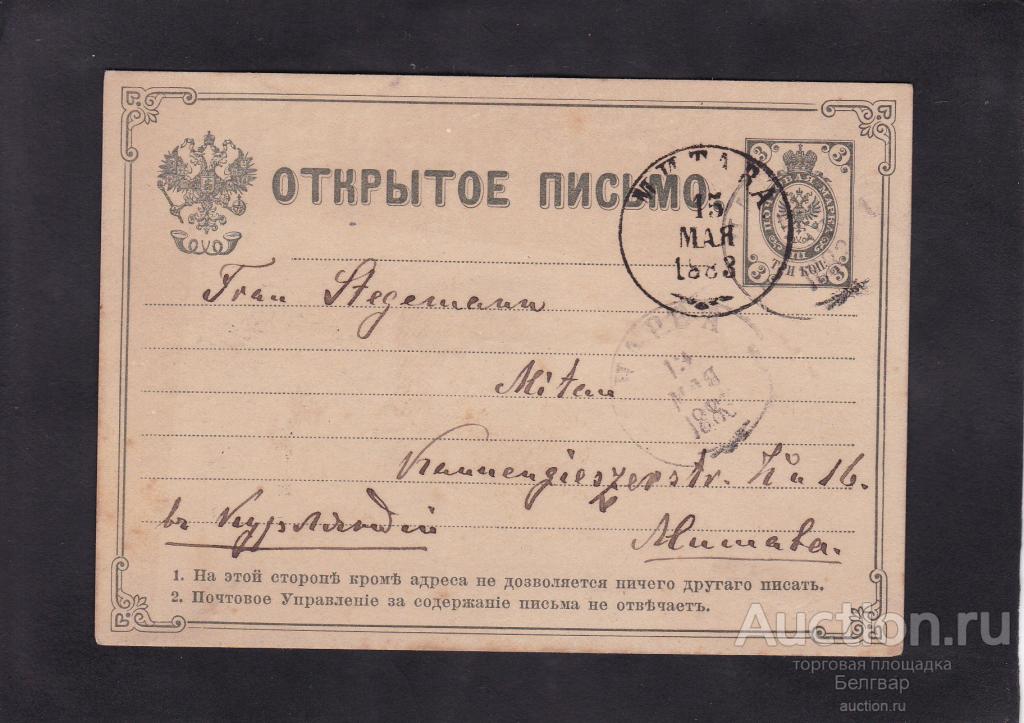 ОТКРЫТОЕ ПИСЬМО.
МИТАВА
15
МАЯ
1883
3 3
ТРИ КОП.
3 3
НАРВА
МАЯ
Frau Stegemann
Mitau
Kannengieszerstr. No 16.
въ Курляндіи
Митава.
1. На этой сторонѣ кромѣ адреса не дозволяется ничего другаго писать.
2. Почтовое Управленіе за содержаніе письма не отвѣчаетъ.
Auction.ru
торговая площадка
Белгвар
auction.ru